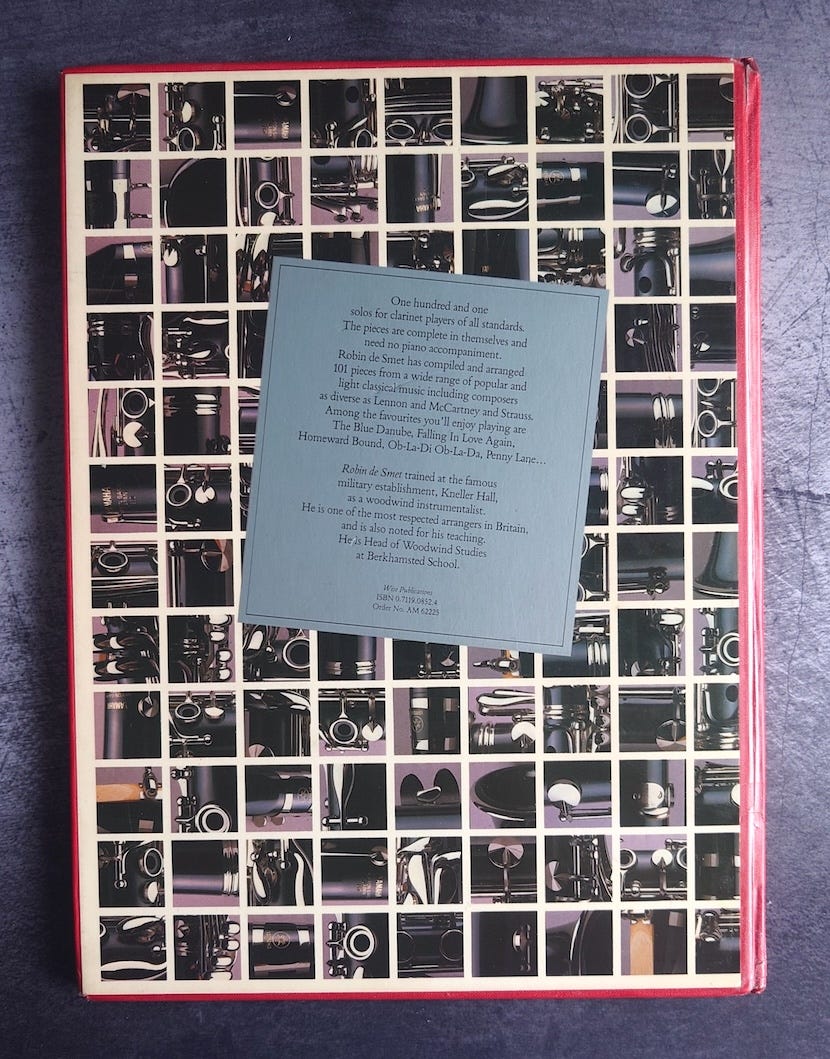 One hundred and one
solos for clarinet players of all standards.
The pieces are complete in themselves and
need no piano accompaniment.
Robin de Smet has compiled and arranged
101 pieces from a wide range of popular and
light classical music including composers
as diverse as Lennon and McCartney and Strauss.
Among the favourites you'll enjoy playing are
The Blue Danube, Falling In Love Again,
Homeward Bound, Ob-La-Di Ob-La-Da, Penny Lane...
Robin de Smet trained at the famous
military establishment, Kneller Hall,
as a woodwind instrumentalist.
He is one of the most respected arrangers in Britain,
and is also noted for his teaching.
He is Head of Woodwind Studies
at Berkhamsted School.
Wise Publications
ISBN 0.7119.0852.4
Order No. AM 62225